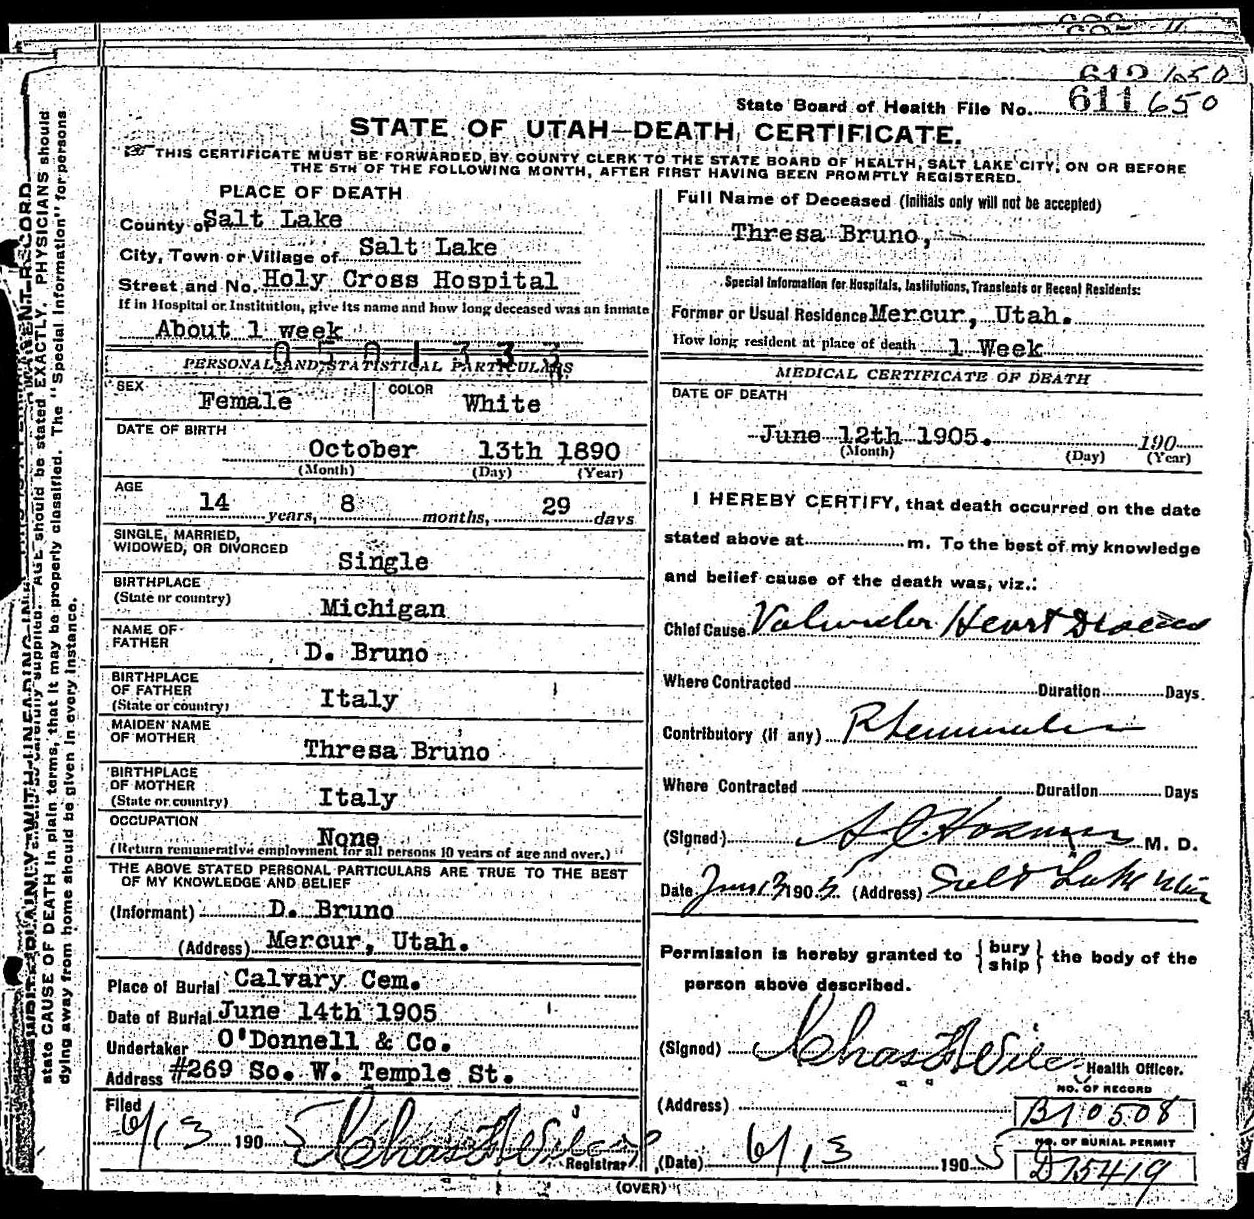 612 650
State Board of Health File No. 611 650
STATE OF UTAH—DEATH CERTIFICATE.
THIS CERTIFICATE MUST BE FORWARDED BY COUNTY CLERK TO THE STATE BOARD OF HEALTH, SALT LAKE CITY, ON OR BEFORE
THE 5TH OF THE FOLLOWING MONTH, AFTER FIRST HAVING BEEN PROMPTLY REGISTERED.
PLACE OF DEATH
County of Salt Lake
City, Town or Village of Salt Lake
Street and No. Holy Cross Hospital
If in Hospital or Institution, give its name and how long deceased was an inmate
About 1 week
0 5 0 1 3 3 3
PERSONAL AND STATISTICAL PARTICULARS
SEX Female COLOR White
DATE OF BIRTH
October 13th 1890
(Month) (Day) (Year)
AGE
14 years, 8 months, 29 days
SINGLE, MARRIED,
WIDOWED, OR DIVORCED Single
BIRTHPLACE
(State or country) Michigan
NAME OF
FATHER D. Bruno
BIRTHPLACE
OF FATHER
(State or country) Italy
MAIDEN NAME
OF MOTHER Thresa Bruno
BIRTHPLACE
OF MOTHER
(State or country) Italy
OCCUPATION None
(Return remunerative employment for all persons 10 years of age and over.)
THE ABOVE STATED PERSONAL PARTICULARS ARE TRUE TO THE BEST
OF MY KNOWLEDGE AND BELIEF
(Informant) D. Bruno
(Address) Mercur, Utah.
Place of Burial Calvary Cem.
Date of Burial June 14th 1905
Undertaker O'Donnell & Co.
Address #269 So. W. Temple St.
Filed
6/13 1905 Chas F Wilcox
Registrar
Full Name of Deceased (Initials only will not be accepted)
Thresa Bruno,
Special Information for Hospitals, Institutions, Transients or Recent Residents:
Former or Usual Residence Mercur, Utah.
How long resident at place of death 1 Week
MEDICAL CERTIFICATE OF DEATH
DATE OF DEATH
June 12th 1905. 190
(Month) (Day) (Year)
I HEREBY CERTIFY, that death occurred on the date
stated above at m. To the best of my knowledge
and belief cause of the death was, viz.:
Chief Cause Valvular Heart Disease
Where Contracted Duration Days.
Contributory (if any) Rheumatism
Where Contracted Duration Days
(Signed) M. D.
Date June 13 1905 (Address) Salt Lake Utah
Permission is hereby granted to {bury ship} the body of the
person above described.
(Signed) Chas F Wilcox
Health Officer.
NO. OF RECORD
(Address) B10508
NO. OF BURIAL PERMIT
(Date) 6/13 1905 D15419
(OVER)
state CAUSE OF DEATH in plain terms, that it may be properly classified. The "Special Information" for persons
dying away from home should be given in every instance.